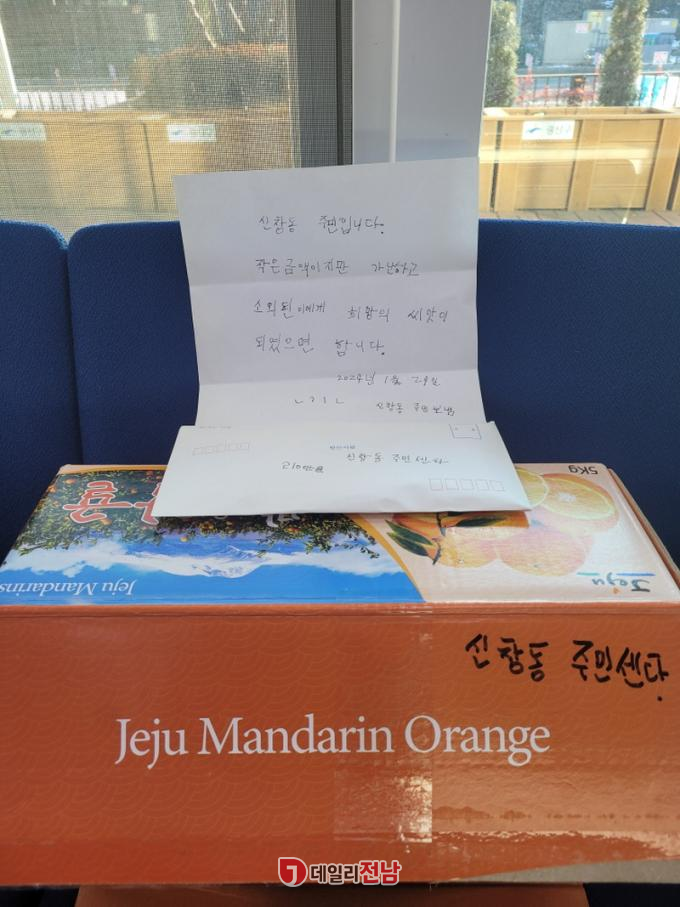 광산구
광산구
신창동 주민입니다.
작은 금액이지만 가난하고
소외된이에게 희망의 씨앗이
되였으면 합니다.
2024년 1월 24일
신창동 주민 보냄
신창동 주민센타
5Kg
Jeju Mandarins
Jeju
신창동 주민센타.
Jeju Mandarin Orange
데일리전남